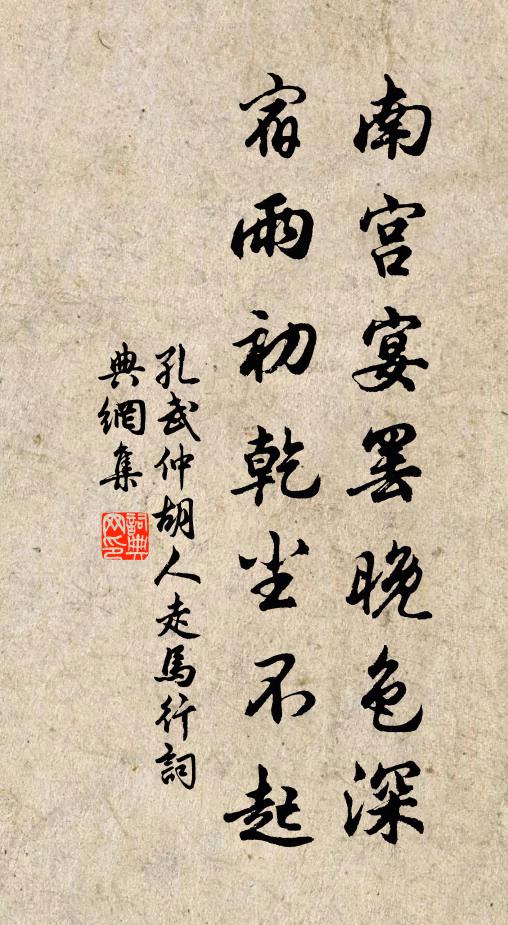 南宫宴罢晚色深
宿雨初乾尘不起
孔武仲胡人走馬行詞
典網集
詞典网印